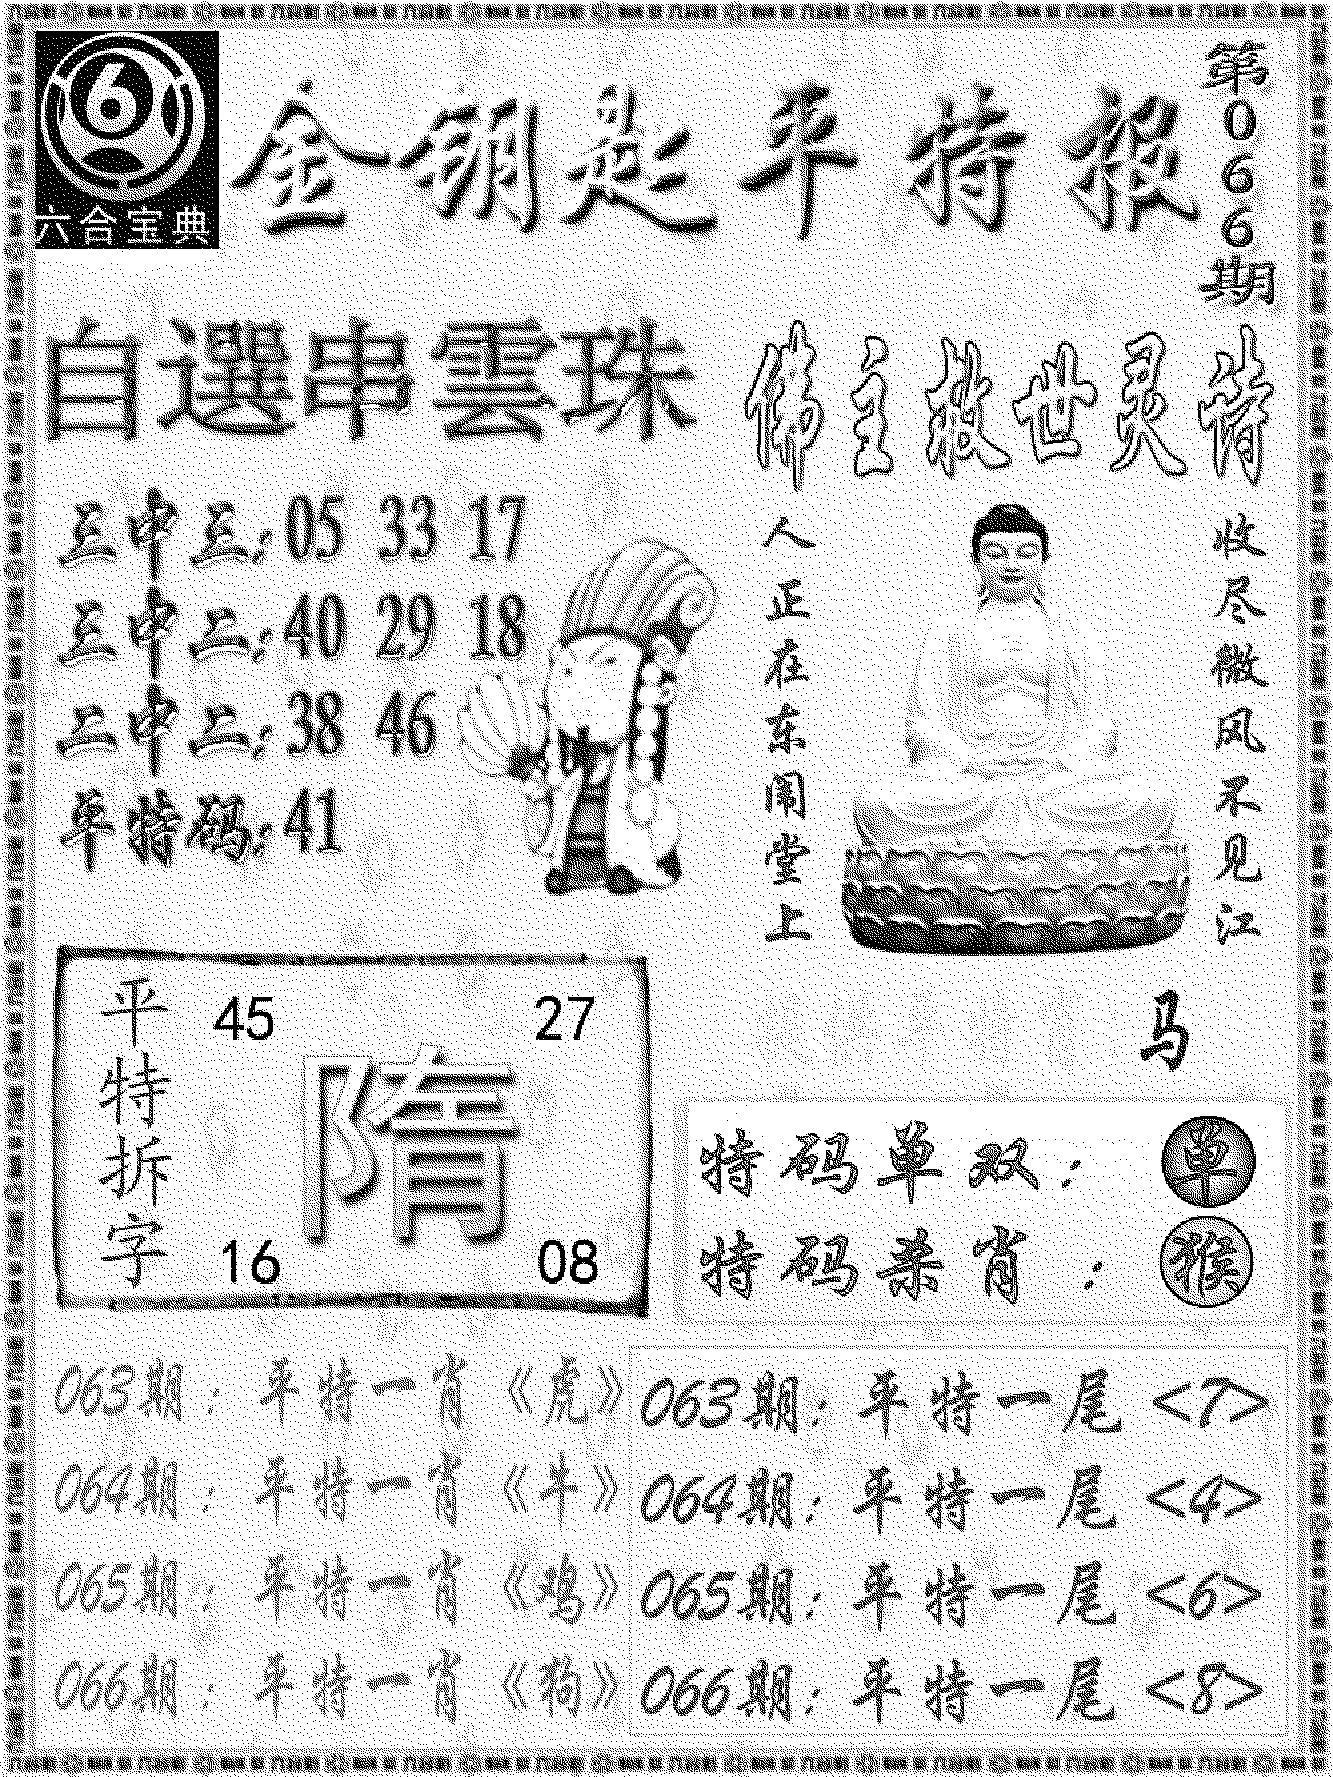 6
六合宝典
金钥匙平特报
第066期
自選串雲珠
三中三：05 33 17
三中二：40 29 18
二中二：38 46
平特码：41
佛主救世灵诗
人正在东闱堂上
收尽微风不见江
马
平特拆字
45 27
隋
16 08
特码单双：单
特码杀肖：猴
063期：平特一肖《虎》
064期：平特一肖《牛》
065期：平特一肖《鸡》
066期：平特一肖《狗》
063期：平特一尾<7>
064期：平特一尾<4>
065期：平特一尾<6>
066期：平特一尾<8>